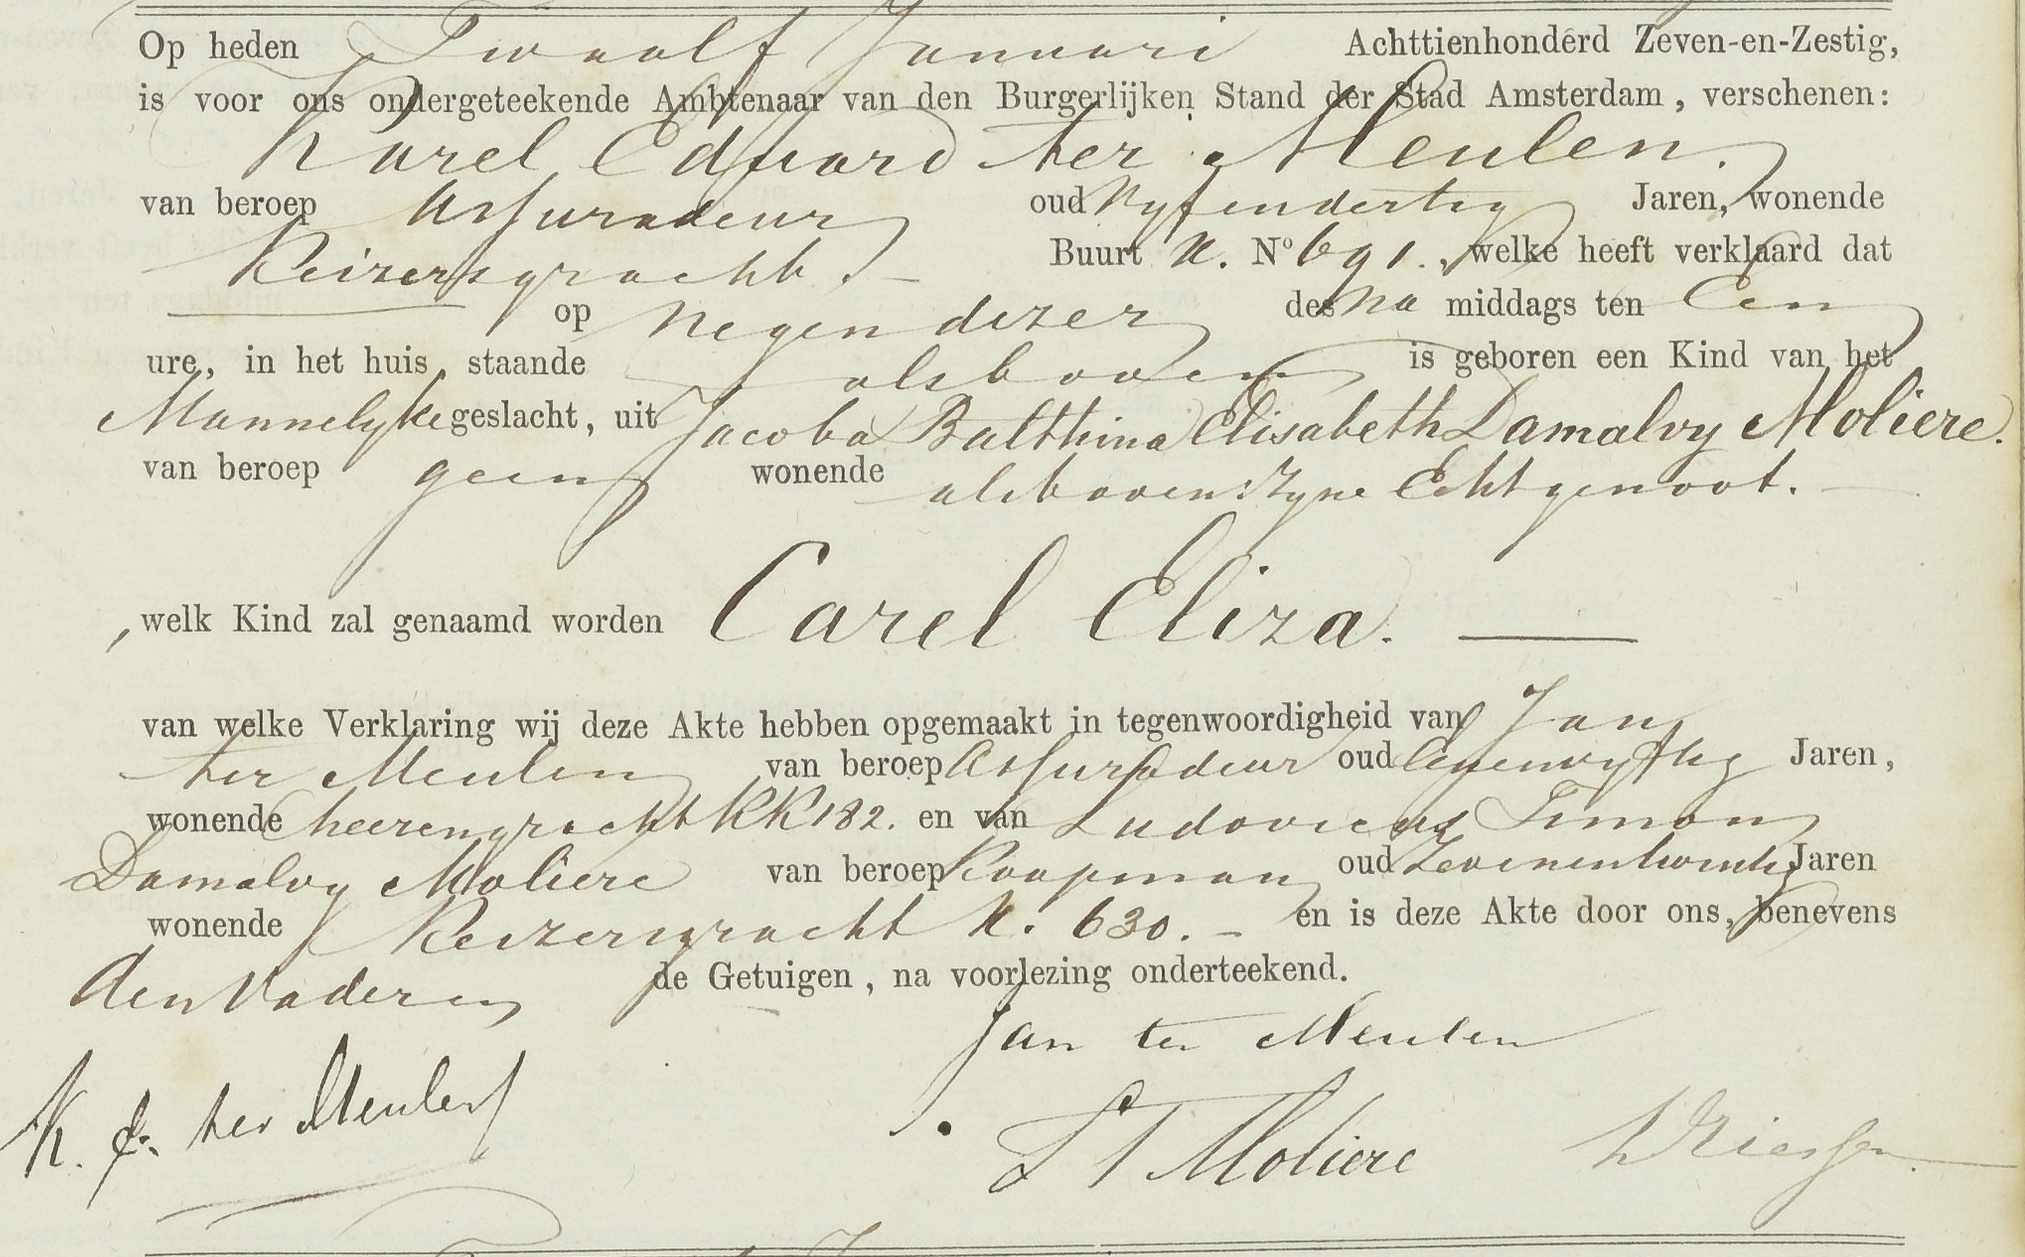 Op heden Twaalf Januari Achttienhonderd Zeven-en-Zestig,
is voor ons ondergeteekende Ambtenaar van den Burgerlijken Stand der Stad Amsterdam, verschenen:
Karel Eduard ter Meulen.
van beroep Assuradeur oud Vyfendertig Jaren, wonende
Keizersgracht. Buurt K. No 691. welke heeft verklaard dat
op negen dezer des na middags ten Een
ure, in het huis staande alsboven is geboren een Kind van het
Mannelyke geslacht, uit Jacoba Balthina Elisabeth Damalvy Moliere.
van beroep geen wonende alsboven: zyne Echtgenoot.
welk Kind zal genaamd worden Carel Eliza.
van welke Verklaring wij deze Akte hebben opgemaakt in tegenwoordigheid van Jan
ter Meulen van beroep Assuradeur oud Jaren,
wonende heerengracht KK 182. en van Ludovicus Timon
Damalvy Moliere van beroep Koopman oud Zevenentwintig Jaren
wonende Keizersgracht K. 630. en is deze Akte door ons, benevens
den Vader en de Getuigen, na voorlezing onderteekend.
Jan ter Meulen
K. E. ter Meulen
L T Moliere